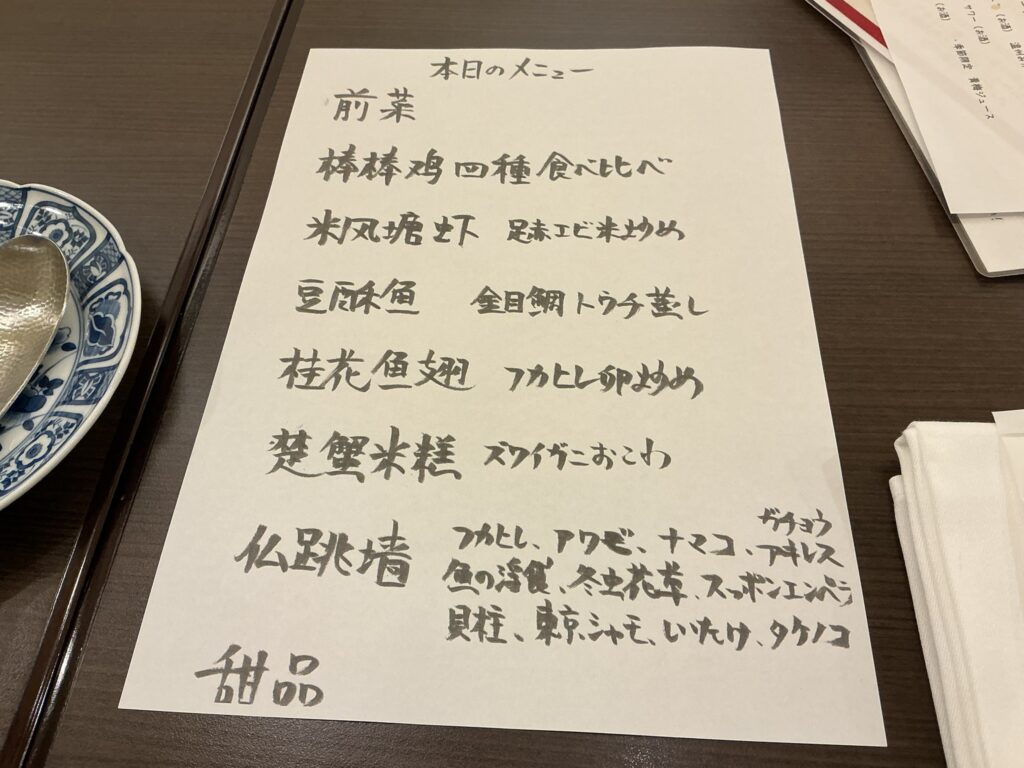 本日のメニュー
前菜
棒棒鸡 四種食べ比べ
米风塘虾 足赤エビ米炒め
豆酥鱼 金目鯛トウチ蒸し
桂花鱼翅 フカヒレ卵炒め
楚蟹米糕 ズワイガニおこわ
仏跳墙 フカヒレ、アワビ、ナマコ、ガチョウアキレス
魚の浮袋、冬虫花草、スッポンエンペラ
貝柱、東京シャモ、しいたけ、タケノコ
甜品
(お酒)
サワー(お酒)
(お酒) 季節限定 黄橙ジュース